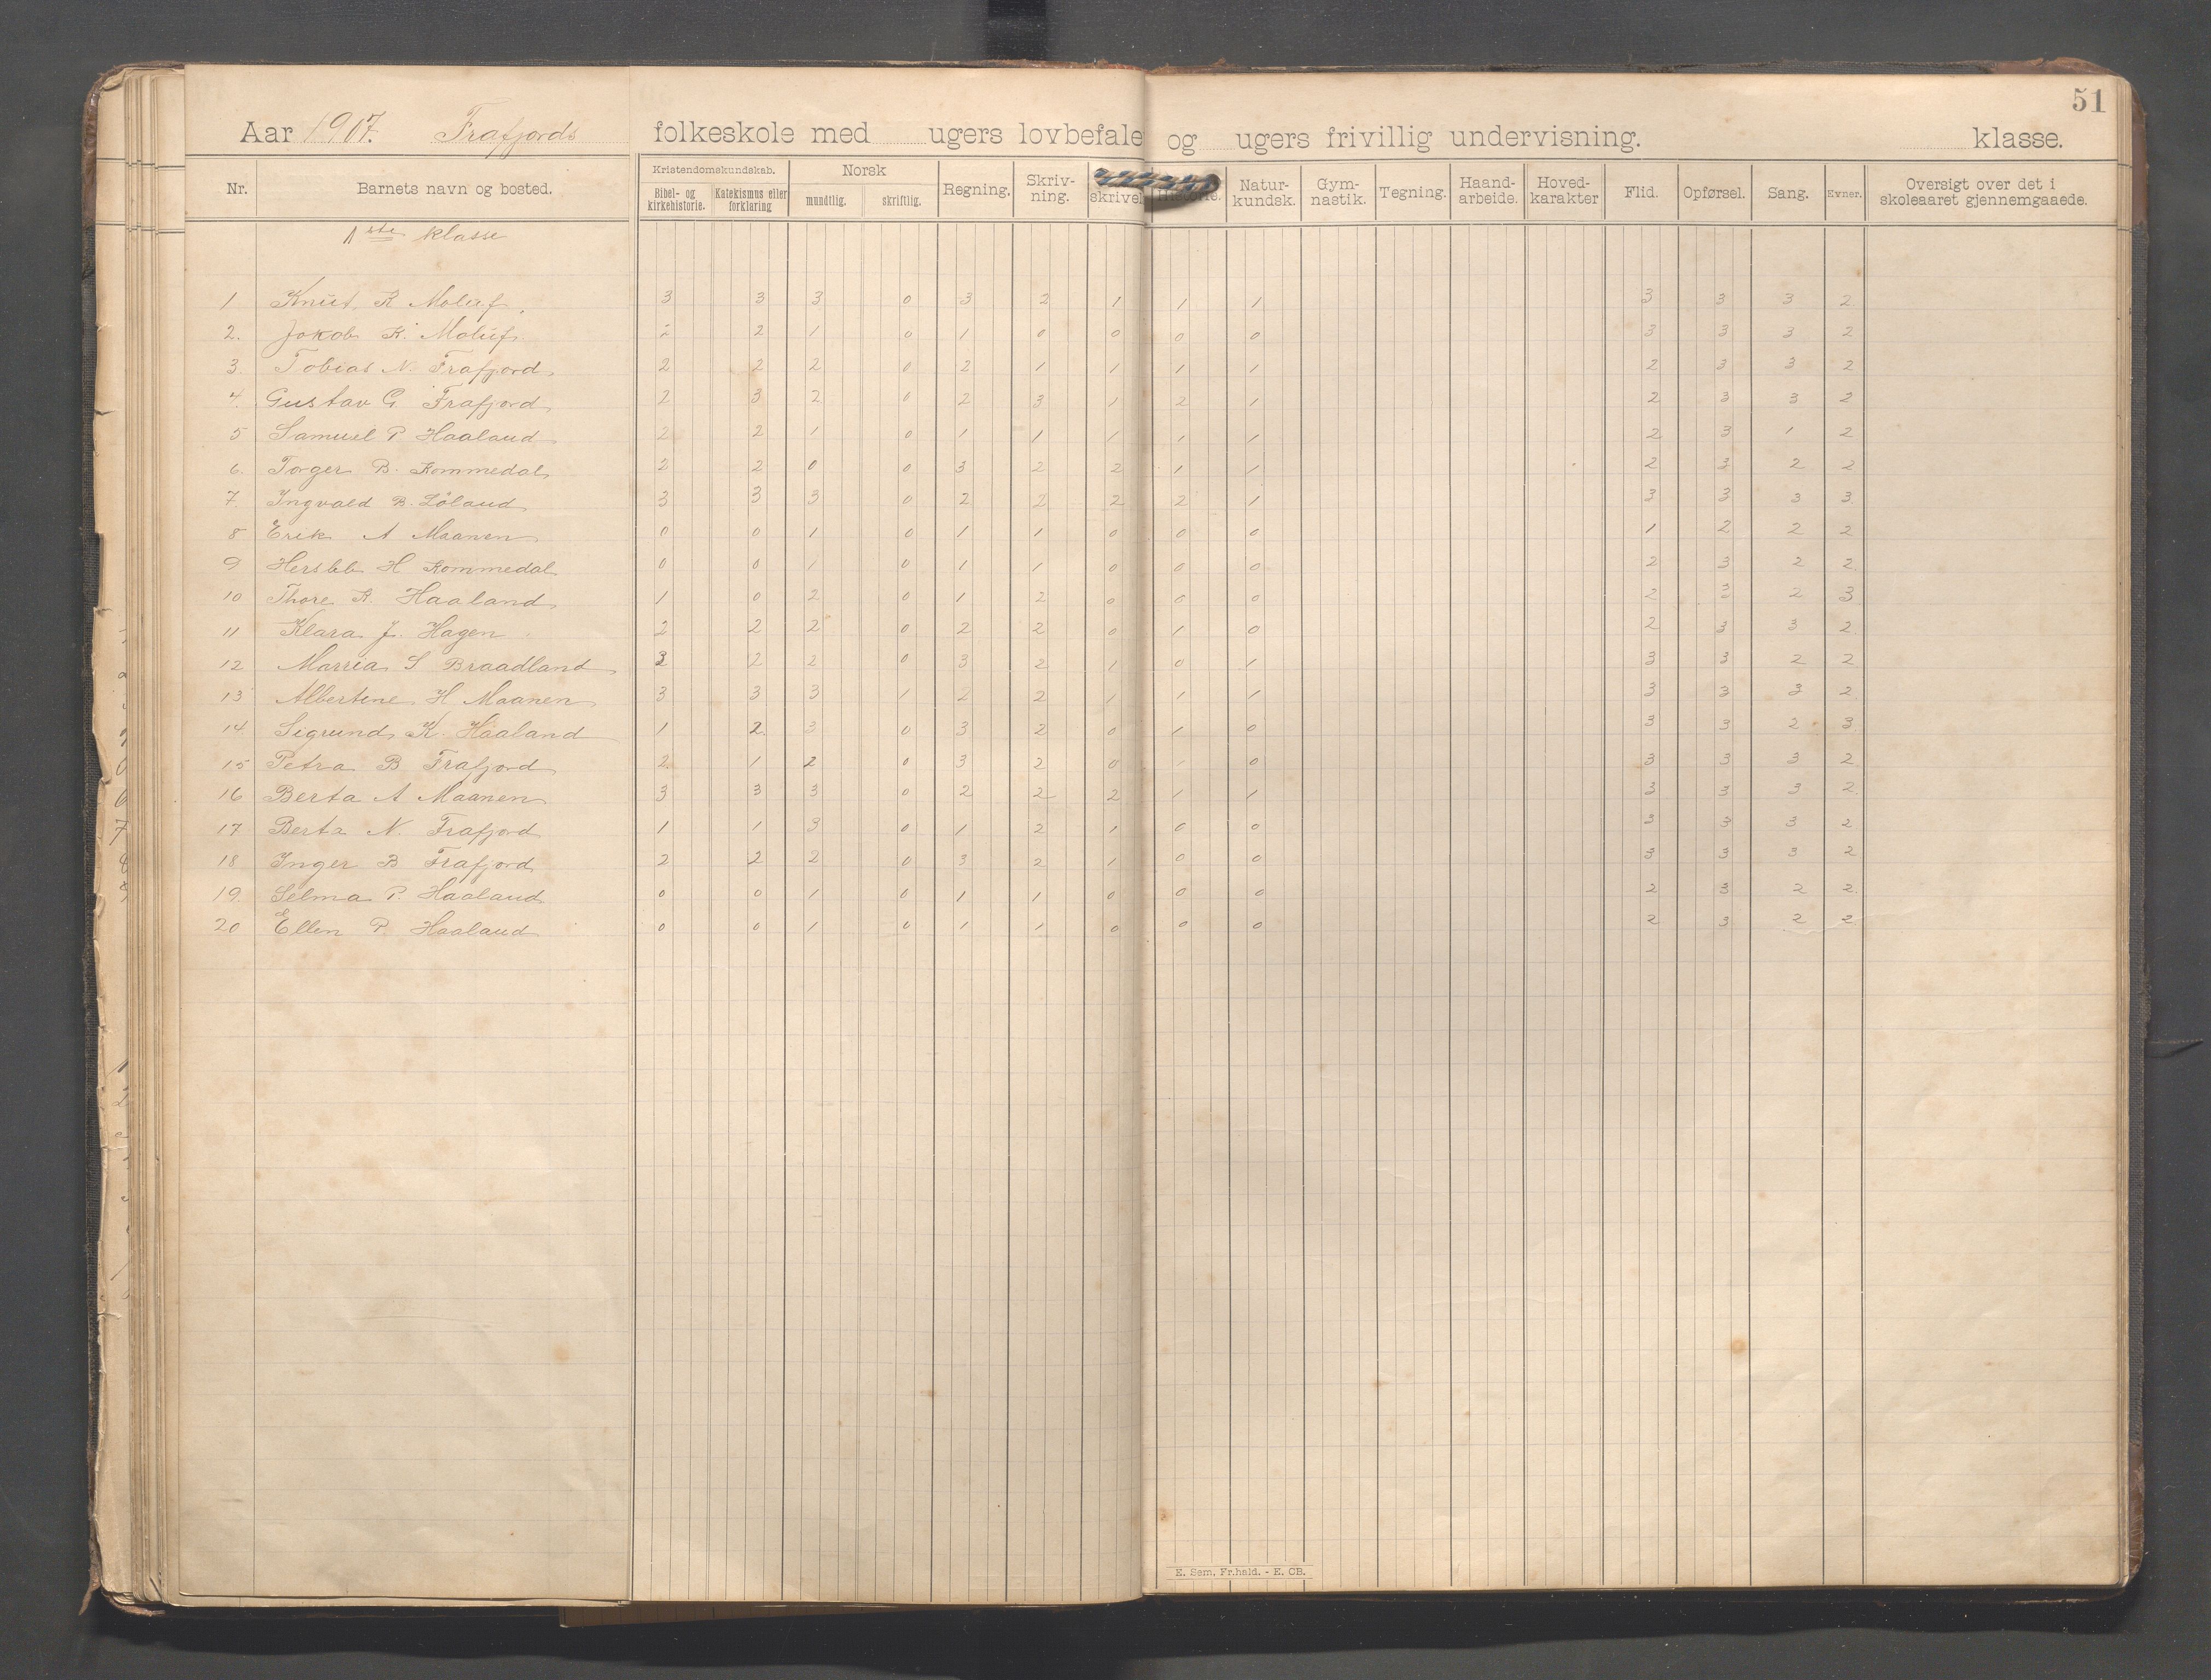 51
Aar 1907. Frafjords folkeskole med ugers lovbefale og ugers frivillig undervisning. klasse.
Nr. Barnets navn og bosted. Kristendomskundskab. Bibel- og kirkehistorie. Katekismus eller forklaring Norsk mundtlig. skriftlig. Regning. Skriv-ning. skrivel Historie. Natur-kundsk. Gym-nastik. Tegning. Haand-arbeide. Hoved-karakter Flid. Opførsel. Sang. Evner. Oversigt over det i skoleaaret gjennemgaaede.
1ste klasse
1. Knut K Moluf. 3 3 3 0 3 2 1 1 1 3 3 3 2
2. Jokob K. Moluf 2 2 1 0 1 0 0 0 0 3 3 3 2
3. Tobias N. Frafjord 2 2 2 0 2 1 1 1 1 2 3 3 2
4. Gustav G Frafjord 2 3 2 0 2 3 1 2 1 2 3 3 2
5 Samuel P Haaland 2 2 1 0 1 1 1 1 1 2 3 1 2
6. Torger B. Kommedal 2 2 0 0 3 2 2 1 1 2 3 2 2
7. Ingvald B. Löland 3 3 3 0 2 2 2 2 1 3 3 3 3.
8 Erik A Maanen 0 0 1 0 1 1 0 0 0 1 2 2 2
9 Hersleb H Kommedal 0 0 1 0 1 1 0 0 0 2 3 2 2.
10 Thore K. Haaland 1 0 2 0 1 2 0 0 0 2 3 2 3
11 Klara J. Hagen 2 2 2 0 2 2 0 1 0 2 3 3 2.
12 Marria S Braadland 3 2 2 0 3 2 1 0 1 3 3 2 2
13 Albertine H Maanen 3 3 3 1 2 2 1 1 1 3 3 3 2.
14 Sigrund K. Haaland 1 2. 3 0 3 2 0 1 0 3 3 2 3
15 Petra B Frafjord 2. 1 2 0 3 2 0 1 0 3 3 3 2.
16 Berta A Maanen 3 3 3 0 2 2 2 1 1 3 3 3 2.
17 Berta N. Frafjord 1 1 3 0 1 2 1 0 0 3 3 3 2
18 Inger B Frafjord 2 2 2 0 3 2 1 0 0 3 3 3 2
19. Selma P. Haaland 0 0 1 0 1 1 0 0 0 2 3 2 2.
20 Ellen P. Haaland 0 0 1 0 1 1 0 0 0 2 3 2 2.
E. Sem, Fr.hald. - E. CB.